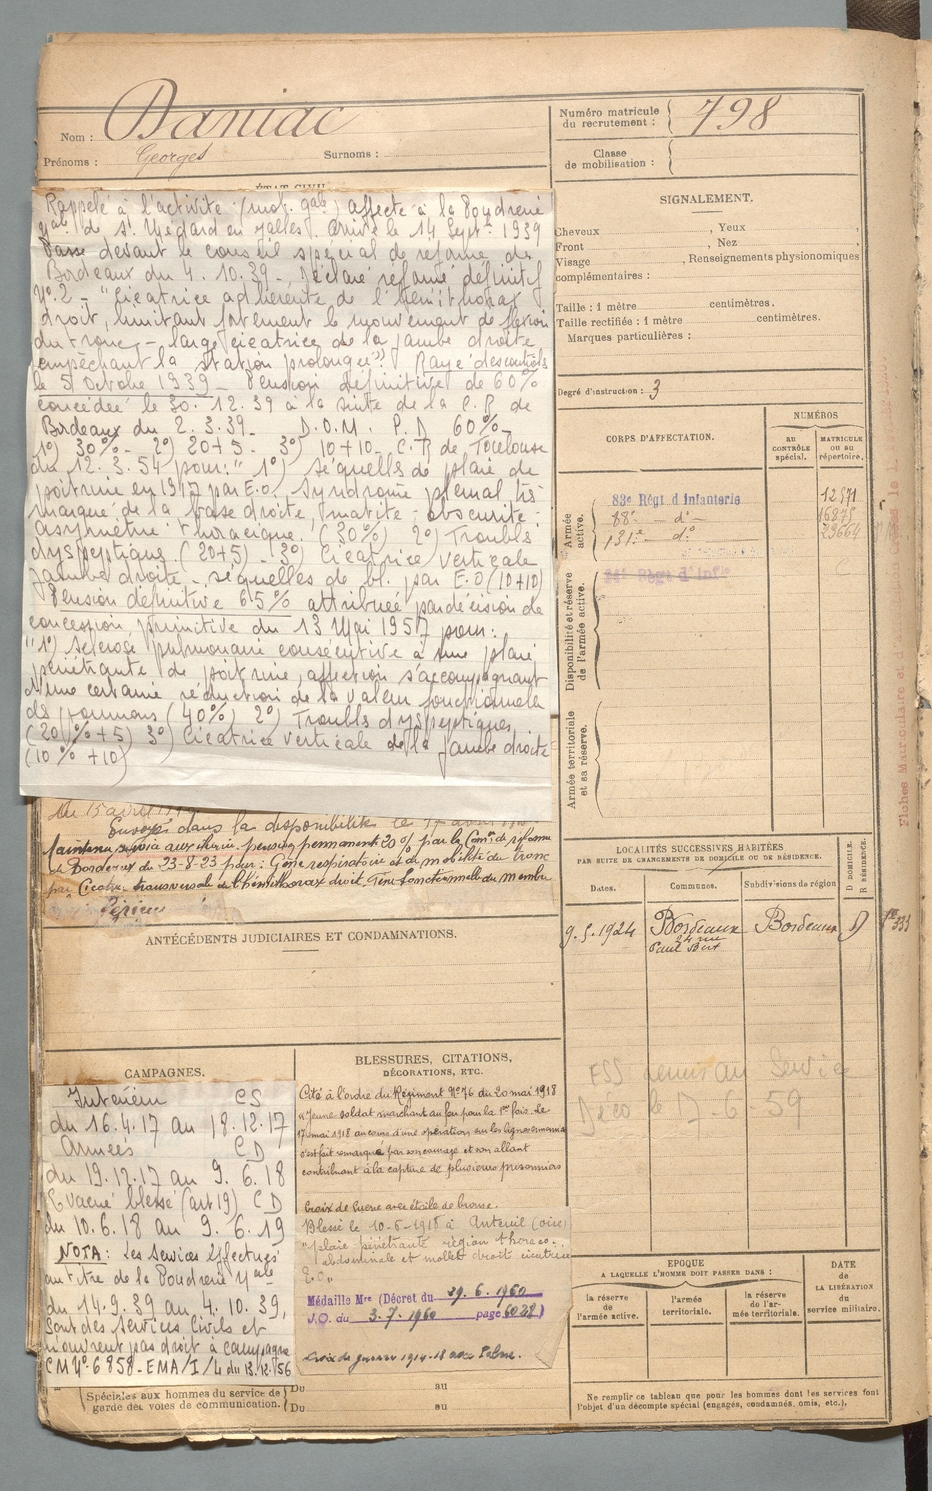 Nom : Daniac
Prénoms : Georges Surnoms :
Numéro matricule du recrutement : 798
Classe de mobilisation :
ÉTAT CIVIL
Rappelé à l'activité (mob. gale) affecté à la Poudrerie
Nale de St Médard en Jalles. Arrivé le 14 Sept. 1939
Passé devant le conseil spécial de réforme de
Bordeaux du 4.10.39 - Déclaré réformé définitif
N° 2 - "Cicatrice adhérente de l'hémithorax
droit, limitant fortement le mouvement de flexion
du tronc - large cicatrice de la jambe droite
empêchant la station prolongée". Rayé des contrôles
le 5 Octobre 1939 - Pension définitive de 60%
concédée le 30.12.39 à la suite de la C.R de
Bordeaux du 2.3.39 - D.O.M. P.D 60% -
1°) 30% - 2°) 20+5 - 3°) 10+10 - C.R de Toulouse
du 12.3.54 pour : " 1°) séquelles de plaie de
poitrine en 1917 par E.O. syndrome pleural très
marqué de la base droite, matité - obscurité -
asymétrie thoracique. (30%) 2°) Troubles
dyspeptiques (20+5) - 3°) Cicatrice verticale
jambe droite - séquelles de bl. par E.O (10+10)
Pension définitive 65% attribuée par décision de
concession primitive du 13 Mai 1957 pour :
"1°) Sclérose pulmonaire consécutive à une plaie
pénétrante de poitrine, affection s'accompagnant
d'une certaine réduction de la valeur fonctionnelle
des poumons (40%) 2°) Troubles dyspeptiques
(20% +5) 3°) Cicatrice verticale de la jambe droite
(10% +10)
Du 15 avril
Envoyé dans la disponibilité le 17 avril
Maintenu service auxiliaire. pension permanente 20% par la Comon de réforme
de Bordeaux du 23-8-23 pour : Gêne respiratoire et de mobilité du tronc
par Cicatrice transversale de l'hémithorax droit.
ANTÉCÉDENTS JUDICIAIRES ET CONDAMNATIONS.
CAMPAGNES.
Intérieur CS
du 16.4.17 au 18.12.17
Armées CD
du 19.12.17 au 9.6.18
Evacué blessé (art 19) CD
du 10.6.18 au 9.6.19
NOTA : Les services effectués
au titre de la Poudrerie Nale
du 14.9.39 au 4.10.39,
sont des services civils et
n'ouvrent pas droit à campagne
CM N° 6858 - EMA/I/4 du 13.12.56
Spéciales aux hommes du service de garde des voies de communication.
Du au
Du au
BLESSURES, CITATIONS,
DÉCORATIONS, ETC.
Cité à l'ordre du Régiment N° 76 du 20 mai 1918
"Jeune soldat marchant au feu pour la 1re fois. Le
17 mai 1918 au cours d'une opération sur les lignes ennemies
s'est fait remarquer par son courage et son allant
contribuant à la capture de plusieurs prisonniers
Croix de Guerre avec étoile de bronze.
Blessé le 10-6-1918 à Anteuil (oise)
"plaie pénétrante région thoraco-
abdominale et mollet droit cicatrice
E.O"
Médaille Mre (Décret du 29.6.1960
J.O. du 3.7.1960 page 6028)
Croix de guerre 1914-18 avec Palme.
SIGNALEMENT.
Cheveux , Yeux ,
Front , Nez ,
Visage , Renseignements physionomiques
complémentaires :
Taille : 1 mètre centimètres.
Taille rectifiée : 1 mètre centimètres.
Marques particulières :
Degré d'instruction : 3
CORPS D'AFFECTATION.
NUMÉROS
AU CONTRÔLE spécial.
MATRICULE OU AU répertoire.
Armée active.
83e Régt d'Infanterie
88e — do —
131e — do
16875
23664
Disponibilité et réserve de l'armée active.
Régt d'Infie
Armée territoriale et sa réserve.
LOCALITÉS SUCCESSIVES HABITÉES
PAR SUITE DE CHANGEMENTS DE DOMICILE OU DE RÉSIDENCE.
Dates. Communes. Subdivisions de région D DOMICILE. R RÉSIDENCE.
9.5.1924 Bordeaux Bordeaux D
24 rue
Paul Bert
FSS remis au Service
Déco le 17-6-59
EPOQUE
A LAQUELLE L'HOMME DOIT PASSER DANS :
la réserve de l'armée active.
l'armée territoriale.
la réserve de l'armée territoriale.
DATE de LA LIBÉRATION du service militaire.
Ne remplir ce tableau que pour les hommes dont les services font
l'objet d'un décompte spécial (engagés, condamnés, omis, etc.).